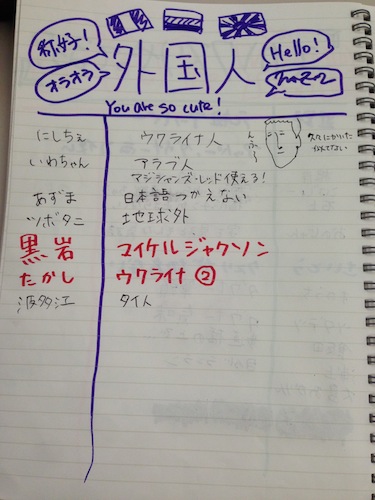 你好!
オラオラ
外国人
Hello!
You are so cute!
にしちぇ ウクライナ人
んふ〜
いわちゃん アラブ人
マジシャンズ・レッド使える!
あずま 日本語つかえない
ツボタニ 地球外
黒岩 マイケルジャクソン
たかし ウクライナ②
波多江 タイ人